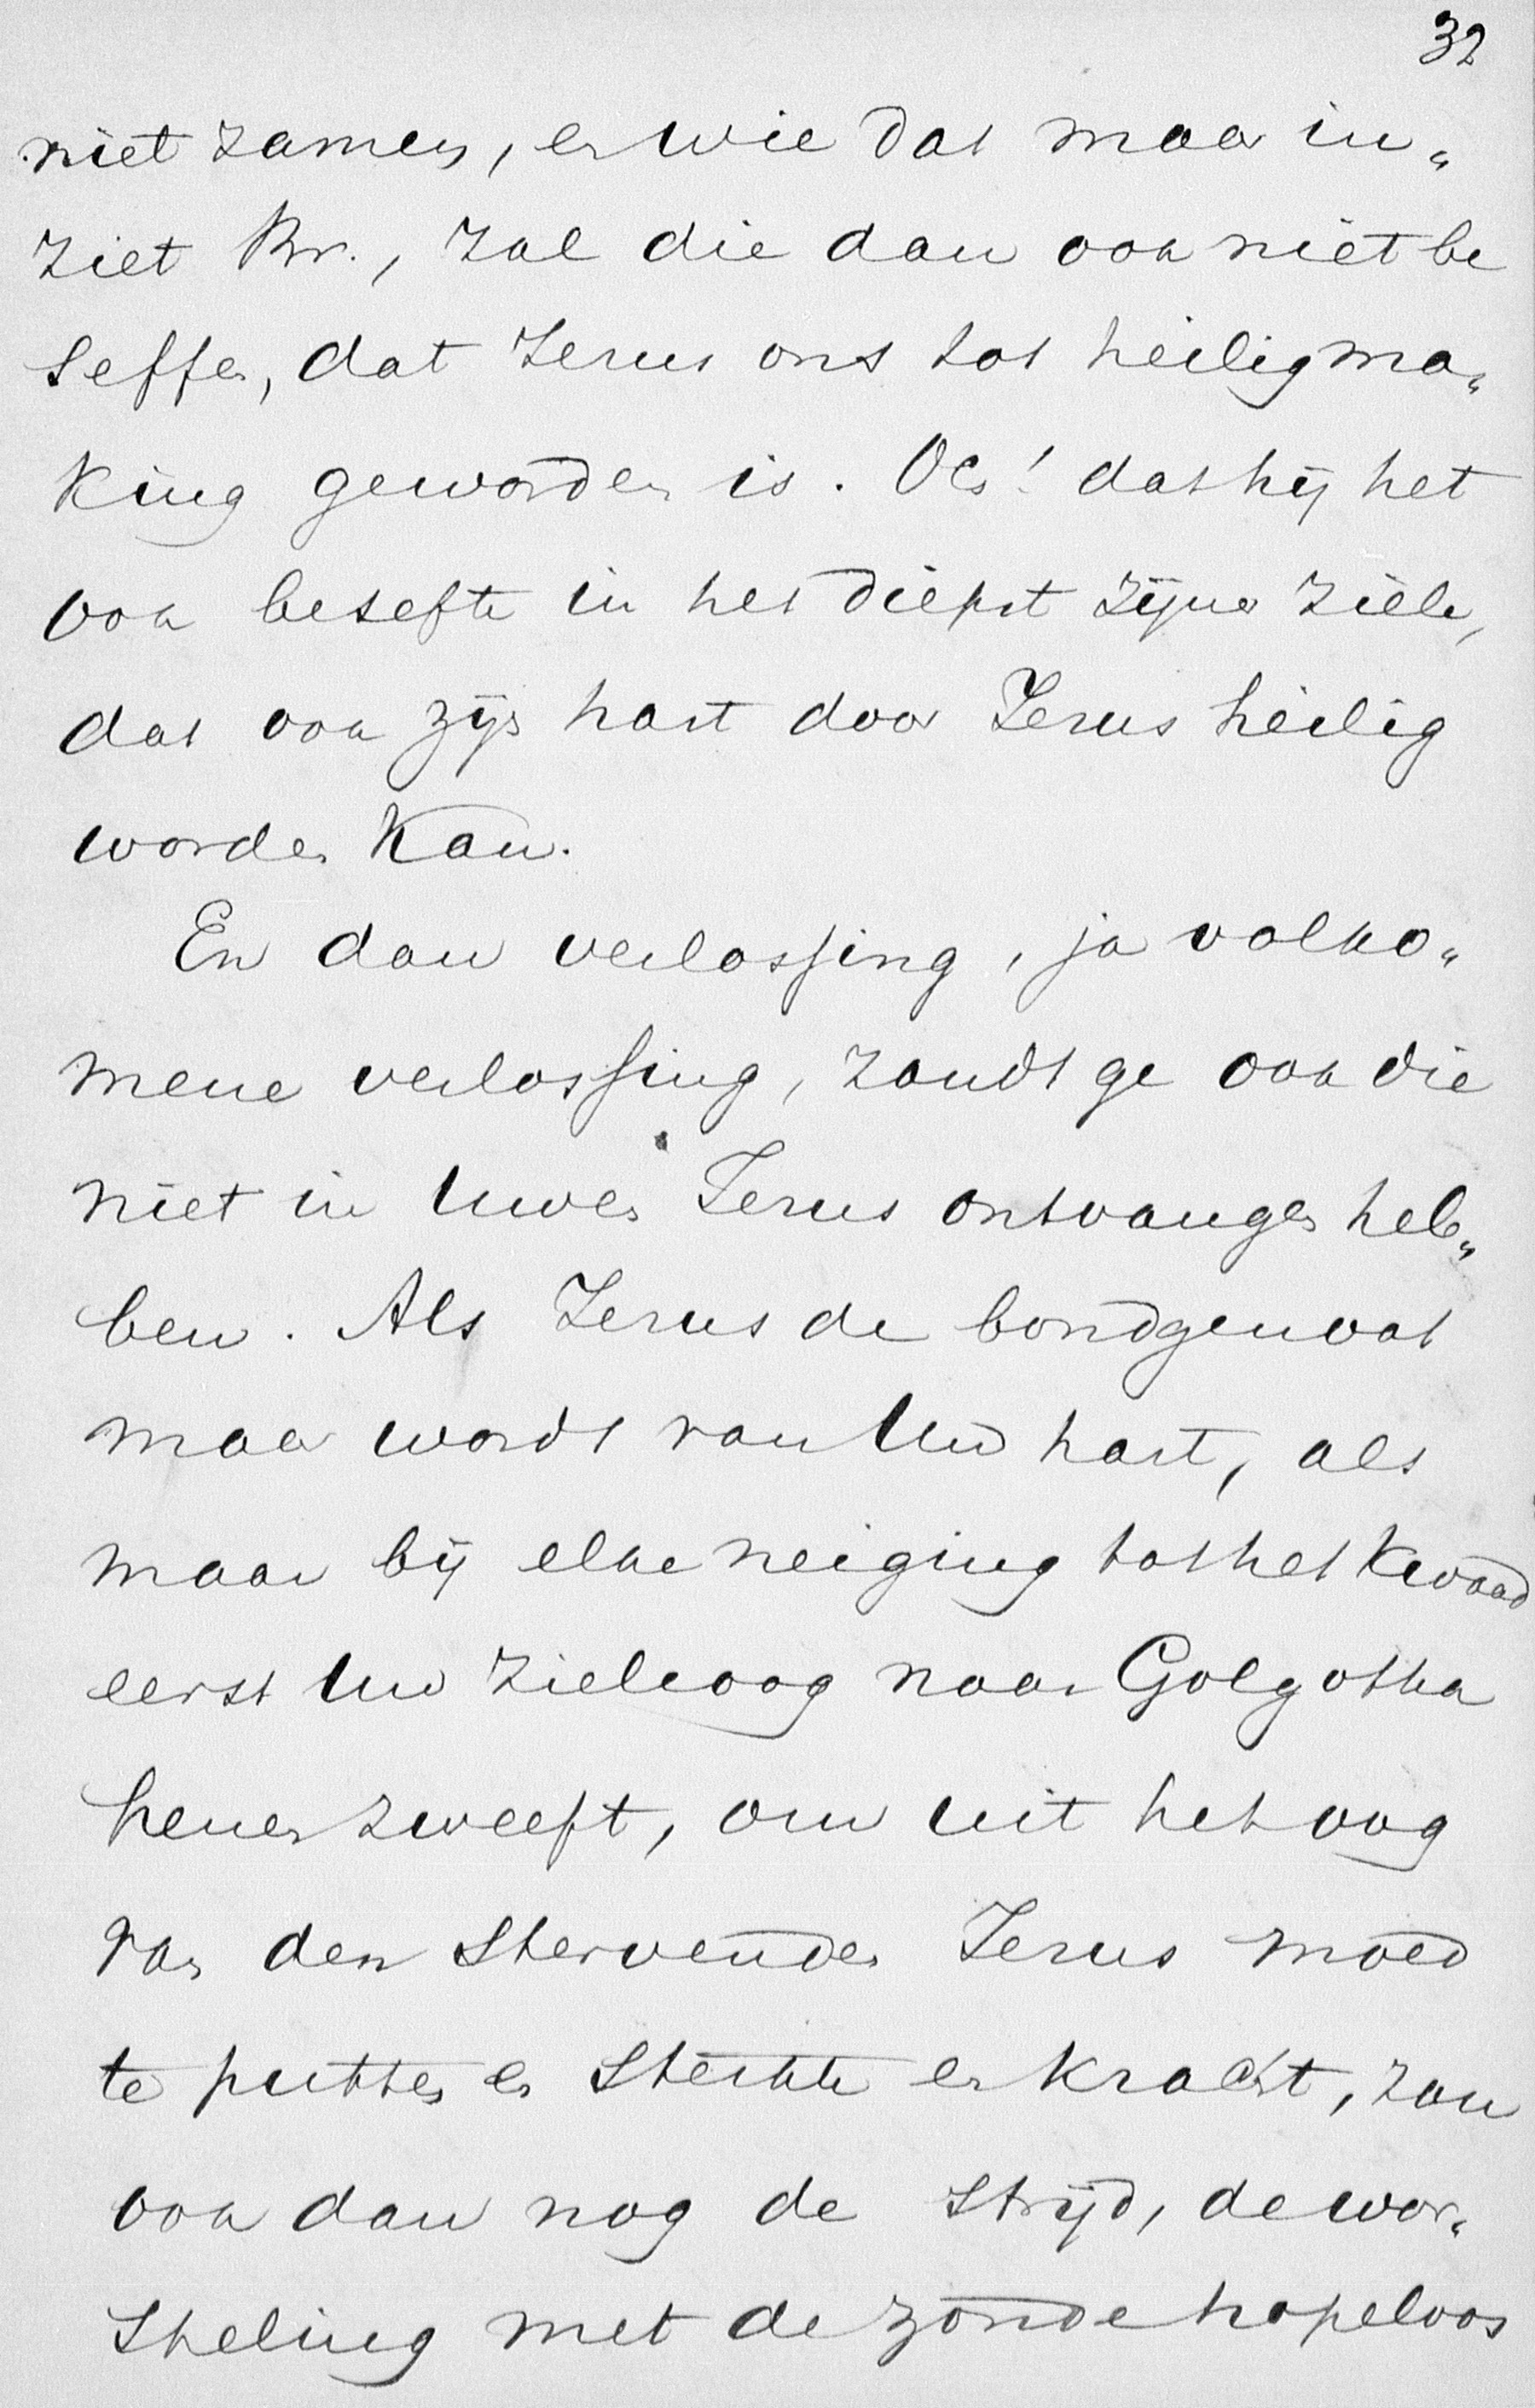 32
niet zamen, en wie dat maar in„
ziet Br., zal die dan ook niet be
seffen, dat Jezus ons tot heiligma„
king geworden is. Och! dat hij het
ook besefte in het diepst zijner ziele,
dat ook zijn hart door Jezus heilig
worden kan.
En dan verlossing, ja volko„
mene verlossing, zoudt ge ook die
niet in Uwen Jezus ontvangen heb„
ben. Als Jezus de bondgenoot
maar wordt van Uw hart, als
maar bij elke neiging tot het kwaad
eerst Uw zieleoog naar Golgotha
henen zweeft, om uit het oog
van den stervenden Jezus moed
te putten en sterkte en kracht, zou
ook dan nog de strijd, de wor„
steling met de zonde hopeloos